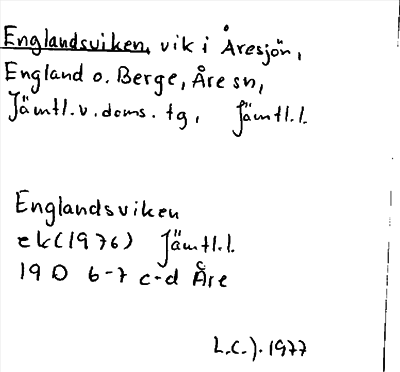 Englandsviken, vik i Åresjön,
England o. Berge, Åre sn,
Jämtl.v.doms.tg, Jämtl.l.
Englandsviken
ek(1976) Jämtl.l.
19 D 6-7 c-d Åre
L.C.J. 1977